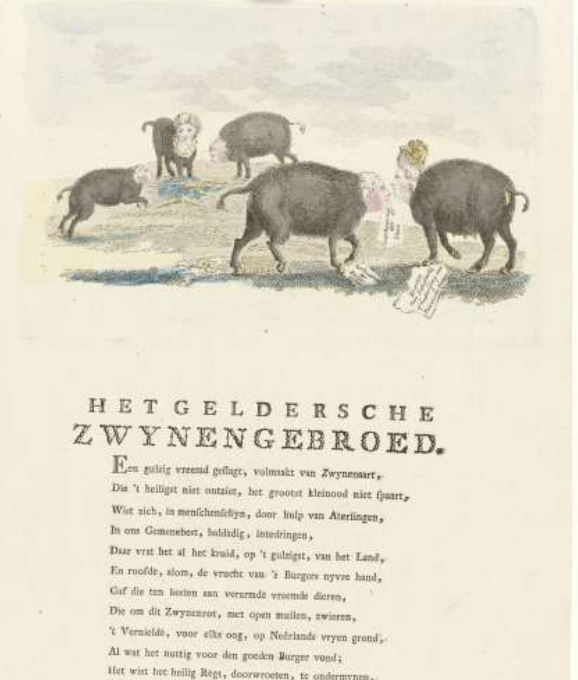 HET GELDERSCHE
ZWYNENGEBROED.
Een gulzig vreemd geslagt, volmaakt van Zwynenaart,
Die 't heiligst niet ontziet, het grootst kleinood niet spaart,
Wist zich, in menschenschyn, door hulp van Aterlingen,
In ons Gemenebest, baldadig, intedringen,
Daar vrat het al het kruid, op 't gulzigst, van het Land,
En roofde, alom, de vrucht van 's Burgers nyvre hand,
Gaf die ten besten aan verarmde vreemde dieren,
Die om dit Zwynenrot, met open muilen, zwieren,
't Vernielde, voor elks oog, op Neêrlands vryen grond,
Al wat het nuttig voor den goeden Burger vond;
Het wist het heilig Regt, doorwroeten, te ondermynen,